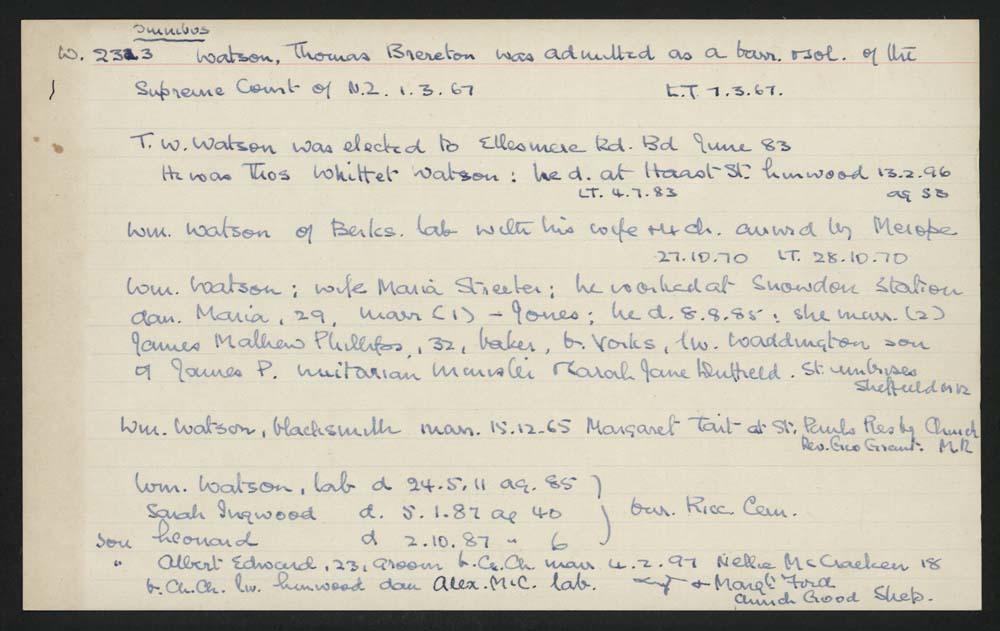 omnibus
W. 2313 Watson, Thomas Brereton was admitted as a barr. & sol. of the
Supreme Court of N.Z. 1.3.67 L.T. 7.3.67.
T. W. Watson was elected to Ellesmere Rd. Bd June 83
He was Thos Whittet Watson : he d. at Haast St. Linwood 13.2.96
LT. 4.7.83 ag 53
Wm. Watson of Berks. lab with his wife & 4 ch. arrived by Merope
27.10.70 LT. 28.10.70
Wm. Watson ; wife Maria Streeter ; he worked at Snowdon Station
dau. Maria, 29, marr (1) – Jones ; he d. 8.8.85 ; she marr. (2)
James Mathew Phillips, 32, baker, b. Yorks, lw. Waddington son
of James P. unitarian minister & Sarah Jane . St.
Sheffield
Wm. Watson, blacksmith marr. 15.12.65 Margaret Tait at St. Pauls Presby Church
Rev. Geo Grant. M.R
Wm. Watson, lab d 24.5.11 ag. 85
Sarah Ingwood d. 5.1.87 ag 40 bur. Ricc Cem.
son Leonard d 2.10.87 " 6
" Albert Edward, 23, groom b. Ch. Ch. marr 4.2.97 Nellie McCracken 18
b. Ch. Ch. lw. Linwood dau Alex. McC. lab. & Margt Ford
Church Good Shep.